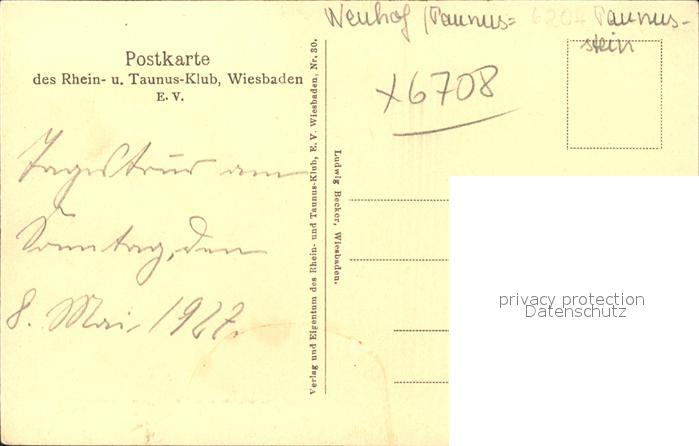 Neuhof / Taunus= 6204 Taunus-
stein
x6708
Postkarte
des Rhein- u. Taunus-Klub, Wiesbaden
E. V.
Tagestour am
Sonntag, den
8. Mai 1927.
Verlag und Eigentum des Rhein- und Taunus-Klub, E. V. Wiesbaden, Nr. 30.
Ludwig Becker, Wiesbaden.
privacy protection
Datenschutz